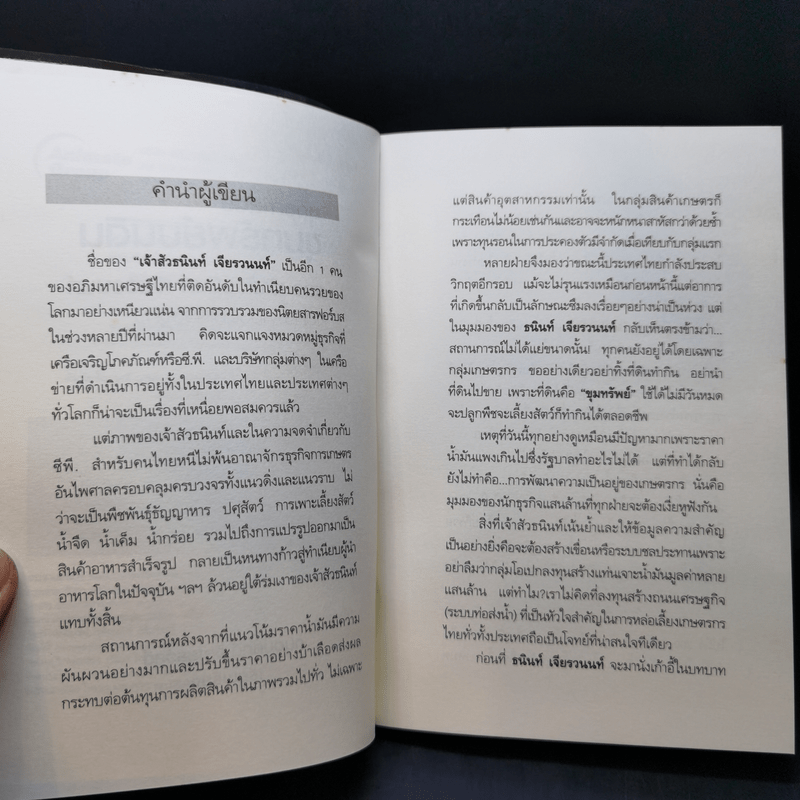 คำนำผู้เขียน
ชื่อของ "เจ้าสัวธนินท์ เจียรวนนท์" เป็นอีก 1 คน
ของอภิมหาเศรษฐีไทยที่ติดอันดับในทำเนียบคนรวยของ
โลกมาอย่างเหนียวแน่น จากการรวบรวมของนิตยสารฟอร์บส
ในช่วงหลายปีที่ผ่านมา คิดจะแจกแจงหมวดหมู่ธุรกิจที่
เครือเจริญโภคภัณฑ์หรือซี.พี. และบริษัทกลุ่มต่างๆ ในเครือ
ข่ายที่ดำเนินการอยู่ทั้งในประเทศไทยและประเทศต่างๆ
ทั่วโลกก็น่าจะเป็นเรื่องที่เหนื่อยพอสมควรแล้ว
แต่ภาพของเจ้าสัวธนินท์และในความจดจำเกี่ยวกับ
ซีพี. สำหรับคนไทยหนีไม่พ้นอาณาจักรธุรกิจการเกษตร
อันไพศาลครอบคลุมครบวงจรทั้งแนวดิ่งและแนวราบ ไม่
ว่าจะเป็นพืชพันธุ์ธัญญาหาร ปศุสัตว์ การเพาะเลี้ยงสัตว์
น้ำจืด น้ำเค็ม น้ำกร่อย รวมไปถึงการแปรรูปออกมาเป็น
สินค้าอาหารสำเร็จรูป กลายเป็นหนทางก้าวสู่ทำเนียบผู้นำ
อาหารโลกในปัจจุบัน ฯลฯ ล้วนอยู่ใต้ร่มเงาของเจ้าสัวธนินท์
แทบทั้งสิ้น
สถานการณ์หลังจากที่แนวโน้มราคาน้ำมันมีความ
ผันผวนอย่างมากและปรับขึ้นราคาอย่างบ้าเลือดส่งผล
กระทบต่อต้นทุนการผลิตสินค้าในภาพรวมไปทั่ว ไม่เฉพาะ
แต่สินค้าอุตสาหกรรมเท่านั้น ในกลุ่มสินค้าเกษตรก็
กระเทือนไม่น้อยเช่นกันและอาจจะหนักหนาสาหัสกว่าด้วยซ้ำ
เพราะทุนรอนในการประคองตัวมีจำกัดเมื่อเทียบกับกลุ่มแรก
หลายฝ่ายจึงมองว่าขณะนี้ประเทศไทยกำลังประสบ
วิกฤตอีกรอบ แม้จะไม่รุนแรงเหมือนก่อนหน้านี้แต่อาการ
ที่เกิดขึ้นกลับเป็นลักษณะซึมลงเรื่อยๆอย่างน่าเป็นห่วง แต่
ในมุมมองของ ธนินท์ เจียรวนนท์ กลับเห็นตรงข้ามว่า...
สถานการณ์ไม่ได้แย่ขนาดนั้น! ทุกคนยังอยู่ได้โดยเฉพาะ
กลุ่มเกษตรกร ขออย่างเดียวอย่าทิ้งที่ดินทำกิน อย่านำ
ที่ดินไปขาย เพราะที่ดินคือ "ขุมทรัพย์" ใช้ได้ไม่มีวันหมด
จะปลูกพืชจะเลี้ยงสัตว์ก็ทำกินได้ตลอดชีพ
เหตุที่วันนี้ทุกอย่างดูเหมือนมีปัญหามากเพราะราคา
น้ำมันแพงเกินไปซึ่งรัฐบาลทำอะไรไม่ได้ แต่ที่ทำได้กลับ
ยังไม่ทำคือ...การพัฒนาความเป็นอยู่ของเกษตรกร นั่นคือ
มุมมองของนักธุรกิจแสนล้านที่ทุกฝ่ายจะต้องเงี่ยหูฟังกัน
สิ่งที่เจ้าสัวธนินท์เน้นย้ำและให้ข้อมูลความสำคัญ
เป็นอย่างยิ่งคือจะต้องสร้างเขื่อนหรือระบบชลประทานเพราะ
อย่าลืมว่ากลุ่มโอเปกลงทุนสร้างแท่นเจาะน้ำมันมูลค่าหลาย
แสนล้าน แต่ทำไม?เราไม่คิดที่ลงทุนสร้างถนนเศรษฐกิจ
(ระบบท่อส่งน้ำ) ที่เป็นหัวใจสำคัญในการหล่อเลี้ยงเกษตรกร
ไทยทั่วทั้งประเทศถือเป็นโจทย์ที่น่าสนใจทีเดียว
ก่อนที่ ธนินท์ เจียรวนนท์ จะมานั่งเก้าอี้ในบทบาท